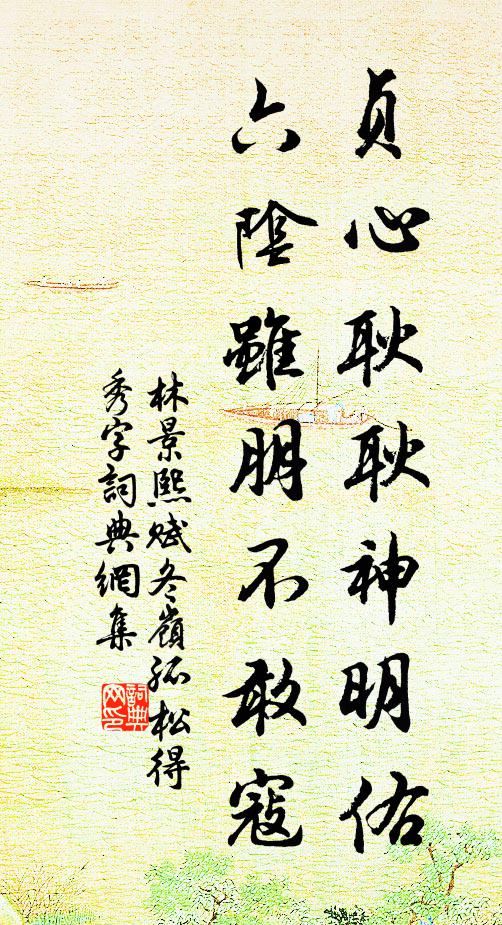 貞心耿耿神明佑
六陰雖朋不敢寇
林景熙赋冬嶺孤松得
秀字詞典網集
詞典
网印